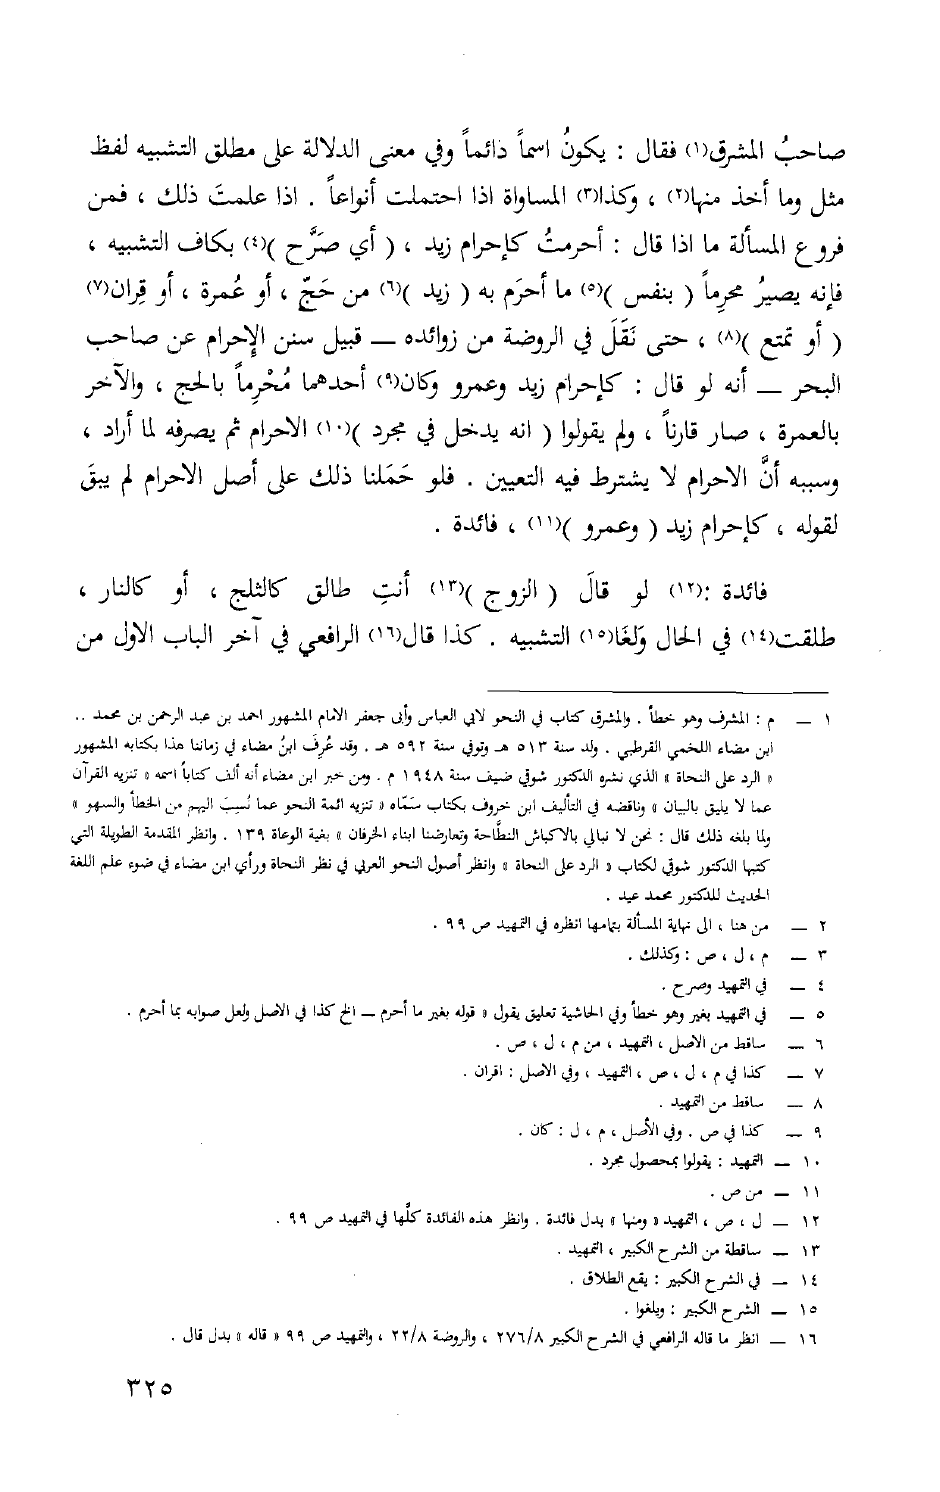 صاحبُ المشرق(١) فقال : يكونُ اسماً دائماً وفي معنى الدلالة على مطلق التشبيه لفظ
مثل وما أخذ منها(٢) ، وكذا(٣) المساواة اذا احتملت أنواعاً . اذا علمتَ ذلك ، فمن
فروع المسألة ما اذا قال : أحرمتُ كإحرام زيد ، ( أي صَرَّح )(٤) بكاف التشبيه ،
فإنه يصيرُ محرِماً ( بنفس )(٥) ما أحرَم به ( زيد )(٦) من حَجّ ، أو عُمرة ، أو قِران(٧)
( أو تمتع )(٨) ، حتى نَقَلَ في الروضة من زوائده ــ قبيل سنن الإحرام عن صاحب
البحر ــ أنه لو قال : كإحرام زيد وعمرو وكان(٩) أحدهما مُحْرِماً بالحج ، والآخر
بالعمرة ، صار قارناً ، ولم يقولوا ( انه يدخل في مجرد )(١٠) الاحرام ثم يصرفه لما أراد ،
وسببه أنَّ الاحرام لا يشترط فيه التعيين . فلو حَمَلنا ذلك على أصل الاحرام لم يبقَ
لقوله ، كإحرام زيد ( وعمرو )(١١) ، فائدة .
فائدة :(١٢) لو قالَ ( الزوج )(١٣) أنتِ طالق كالثلج ، أو كالنار ،
طلقت(١٤) في الحال وَلَغَا(١٥) التشبيه . كذا قال(١٦) الرافعي في آخر الباب الاول من
١ ــ م : المشرف وهو خطأ . والمشرق كتاب في النحو لابي العباس وأبى جعفر الامام المشهور احمد بن عبد الرحمن بن محمد ..
ابن مضاء اللخمي القرطبي . ولد سنة ٥١٣ هـ وتوفي سنة ٥٩٢ هـ . وقد عُرِفَ ابنُ مضاء في زماننا هذا بكتابه المشهور
« الرد على النحاة » الذي نشره الدكتور شوقي ضيف سنة ١٩٤٨ م . ومن خبر ابن مضاء أنه ألف كتاباً اسمه « تنزيه القرآن
عما لا يليق بالبيان » وناقضه في التأليف ابن خروف بكتاب سَمّاه « تنزيه ائمة النحو عما نُسِبَ اليهم من الخطأ والسهو »
ولما بلغه ذلك قال : نحن لا نبالي بالاكباش النطّاحة وتعارضنا ابناء الخرفان » بغية الوعاة ١٣٩ . وانظر المقدمة الطويلة التي
كتبها الدكتور شوقي لكتاب « الرد على النحاة » وانظر أصول النحو العربي في نظر النحاة ورأي ابن مضاء في ضوء علم اللغة
الحديث للدكتور محمد عيد .
٢ ــ من هنا ، الى نهاية المسألة بتمامها انظره في التمهيد ص ٩٩ .
٣ ــ م ، ل ، ص : وكذلك .
٤ ــ في التمهيد وصرح .
٥ ــ في التمهيد بغير وهو خطأ وفي الحاشية تعليق يقول « قوله بغير ما أحرم ــ الخ كذا في الاصل ولعل صوابه بما أحرم .
٦ ــ ساقط من الاصل ، التمهيد ، من م ، ل ، ص .
٧ ــ كذا في م ، ل ، ص ، التمهيد ، وفي الاصل : اقران .
٨ ــ ساقط من التمهيد .
٩ ــ كذا في ص . وفي الأصل ، م ، ل : كان .
١٠ ــ التمهيد : يقولوا بمحصول مجرد .
١١ ــ من ص .
١٢ ــ ل ، ص ، التمهيد « ومنها » بدل فائدة . وانظر هذه الفائدة كلَّها في التمهيد ص ٩٩ .
١٣ ــ ساقطة من الشرح الكبير ، التمهيد .
١٤ ــ في الشرح الكبير : يقع الطلاق .
١٥ ــ الشرح الكبير : ويلغوا .
١٦ ــ انظر ما قاله الرافعي في الشرح الكبير ٢٧٦/٨ ، والروضة ٢٢/٨ ، والتمهيد ص ٩٩ « قاله » بدل قال .
٣٢٥